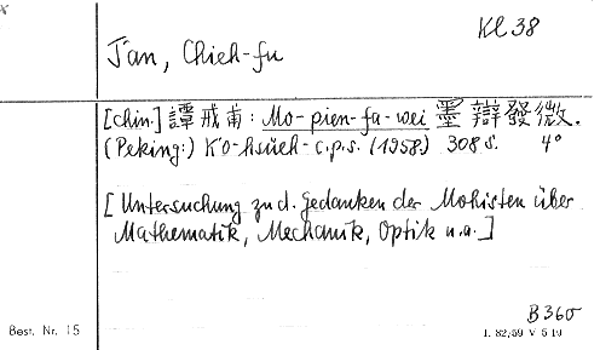 Kl 38
T'an, Chieh-fu
[chin.] 譚戒甫: Mo-pien-fa-wei 墨辯發微.
(Peking:) K'o-hsüeh-c.p.s. (1958.) 308 S. 4°
[Untersuchung zu d. Gedanken der Mohisten über
Mathematik, Mechanik, Optik u.a.]
B 360
Best. Nr. 15